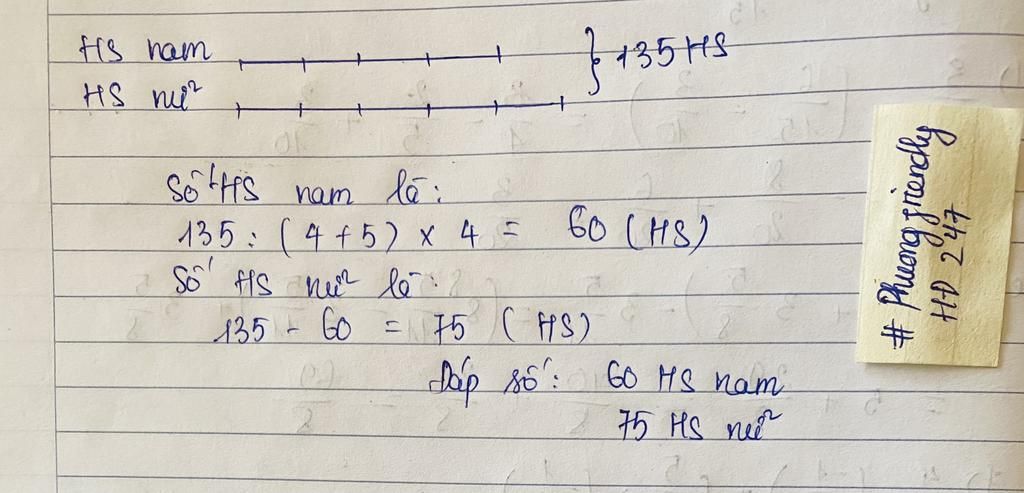 HS nam
} 135 HS
HS nữ
Số HS nam là:
135 : (4 + 5) × 4 = 60 (HS)
Số HS nữ là:
135 - 60 = 75 (HS)
Đáp số: 60 HS nam
75 HS nữ
# Phuongfriendly
HD 247